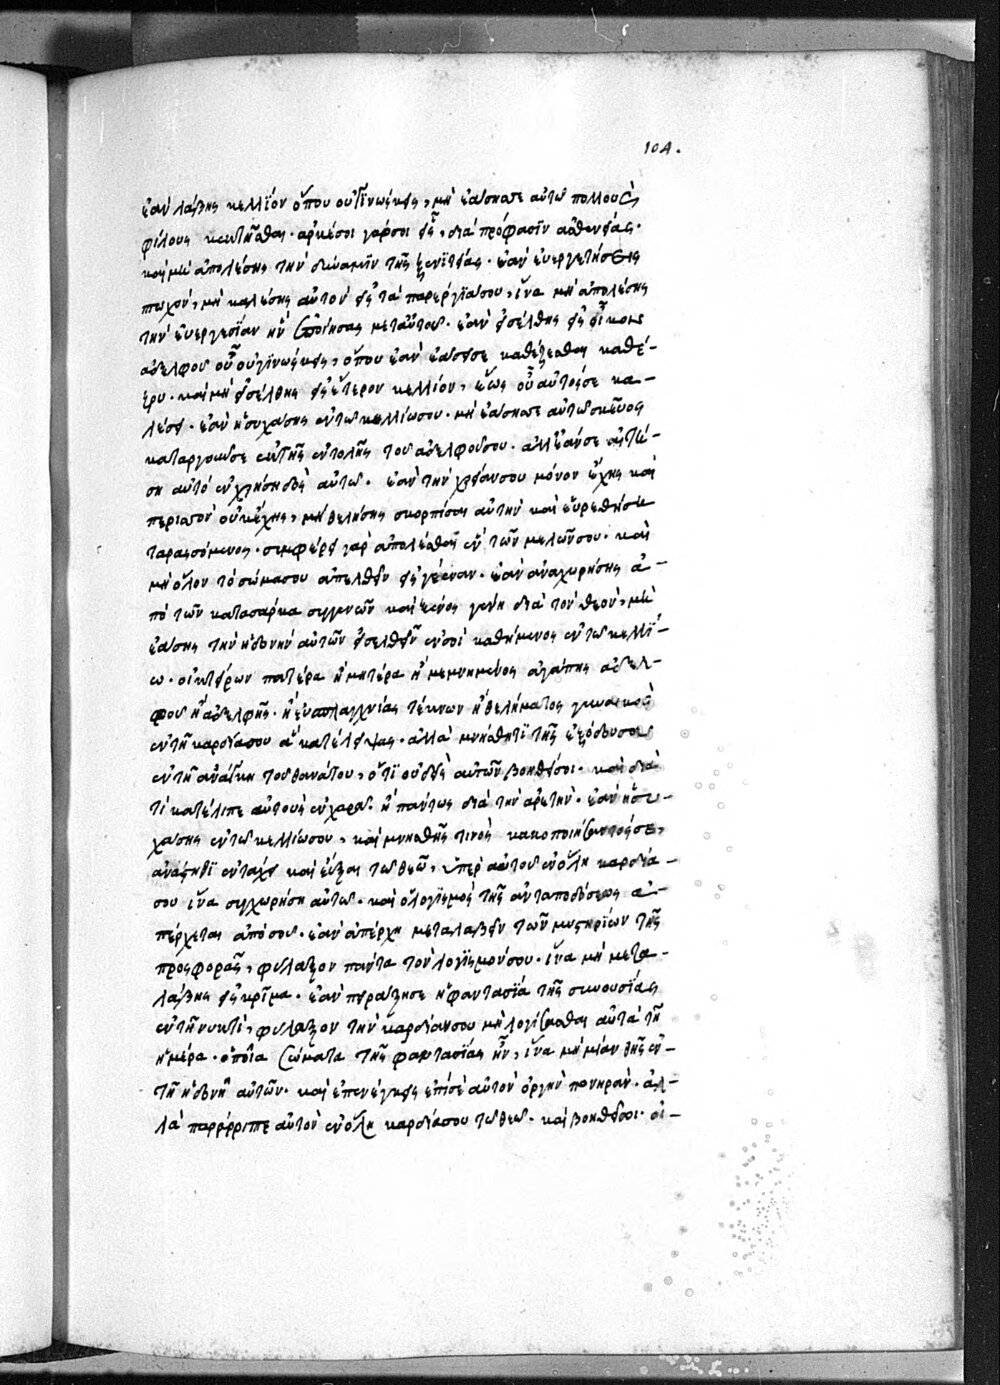 104.
ἐὰν λάβης κελλΐον ὅπου οὐ γινώσκης, μὴ ἐάσης ἐν αὐτῶ πολλοὺς
φίλους κεκτῆσθαι· ἀρκέσοι γάρ σοι εἷς, διὰ πρόφασϊν ἀσθενείας·
καὶ μὴ ἀπολέσης τὴν δύναμϊν τῆς ξενϊτείας· ἐὰν εὐεργετήσεις
πτωχόν, μὴ καλέσης αὐτὸν εἰς τὰ παρέργϊα σου, ἵνα μὴ ἀπολέσης
τὴν εὐεργεσϊαν ἣν ἐποίησας μετ αὐτοῦ· ἐὰν εἰσέλθης εἰς οἶκον
ἀδελφοῦ οὗ οὐ γϊνώσκεις, ὅπου ἐὰν ἐάσει σε καθέζεσθαι καθέ-
ζου· καὶ μὴ εἰσέλθης εἰς ἕτερον κελλίον, ἕως οὗ αὐτός σε κα-
λέσει· ἐὰν ἡσυχάσης ἐν τῶ κελλίω σου· μὴ ἐάσης αὐτῶ σκεῦος
καταργοῦν σε ἐκ τῆς ἐντολῆς τοῦ ἀδελφοῦ σου· ἀλλ ἐάν σε αἰτή-
ση αὐτὸ ἐν χρήσει δὸς αὐτῶ· ἐὰν τὴν χρείαν σου μόνον ἔχης καὶ
περισσὸν οὐκ ἔχης, μὴ θελήσης σκορπίσαι αὐτὴν καὶ εὑρεθήση
ταρασσόμενος· συμφέρει γὰρ ἀπολέσθαι ἓν τῶν μελῶν σου· καὶ
μὴ ὅλον τὸ σῶμα σου ἀπελθεῖν εἰς γέεναν· ἐὰν ἀναχωρήσης ἀ-
πὸ τῶν κατασάρκα συγγενῶν καὶ ξένος γένη διὰ τὸν θεόν, μὴ
ἐάσης τὴν ἡδονὴν αὐτῶν εἰσελθεῖν ἐν σοὶ καθήμενος ἐν τῶ κελλΐ-
ω· οἰκτείρων πατέρα ἢ μητέρα ἢ μεμνημένος ἀγάπης ἀδελ-
φοῦ ἢ ἀδελφῆς· ἢ εὐσπλαγχνίας τέκνων ἢ θελήματος γυναικὸς
ἐν τῆ καρδία σου ἃ κατέλειψας· ἀλλὰ μνήσθητϊ τῆς ἐξόδου σου
ἐν τῆ ἀνάγκη τοῦ θανάτου, ὅτϊ οὐδεὶς αὐτῶν βοηθεῖ σοι· καὶ διὰ
τί κατέλιπε αὐτοὺς ἐν χαρᾶ· ἢ πάντως διὰ τὴν ἀρετήν· ἐὰν ἡσυ-
χάσης ἐν τῶ κελλίω σου, καὶ μνησθῆς τινὸς κακοποιήσαντός σε,
ἀνάστηθϊ ἐν τάχει καὶ εὖξαι τῶ θεῶ, ὑπὲρ αὐτοῦ ἐν ὅλη καρδία
σου ἵνα συγχωρήση αὐτῶ· καὶ ὁ λογϊσμὸς τῆς ἀνταποδόσεως ἀ-
πέρχεται ἀπὸ σοῦ· ἐὰν ἀπέρχη μεταλαβεῖν τῶν μυστηρίων τῆς
προσφορᾶς, φύλαξον πάντα τὸν λογϊσμόν σου· ἵνα μὴ μετα-
λάβης εἰς κρῖμα· ἐὰν πειράζη σε ἡ φαντασϊα τῆς συνουσίας
ἐν τῆ νυκτὶ, φύλαξον τὴν καρδίαν σου μὴ λογίζεσθαι αὐτὰ τῆ
ἡμέρα· ὁποῖα σώματα τῆς φαντασίας ἦν, ἵνα μὴ μιανθῆς ἐν
τῆ ἡδονῆ αὐτῶν· καὶ ἐπενέγκης ἐπί σε αὐτὸν ὀργὴν πονηράν· ἀλ-
λὰ παράρριπτε αὐτὸν ἐν ὅλη καρδία σου τῶ θεῶ· καὶ βοηθεῖ σοι· οἰ-